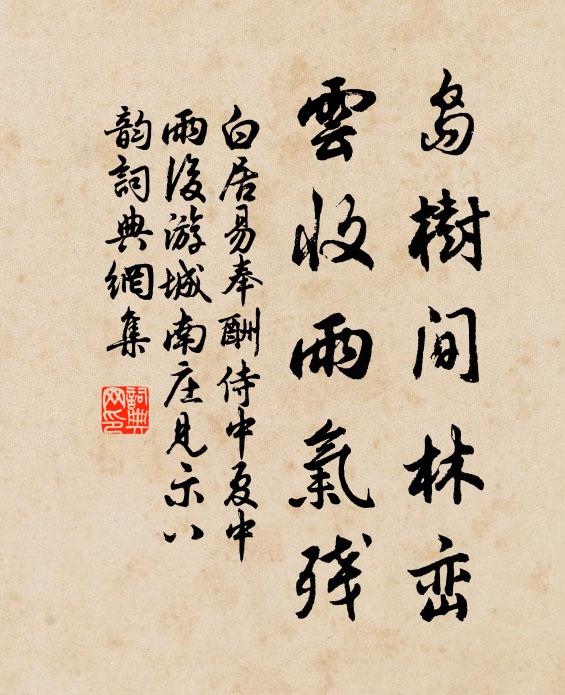 島樹間林峦
雲收雨氣残
白居易奉酬侍中夏中
雨後游城南庄見示八
韵詞典網集
詞典
网印